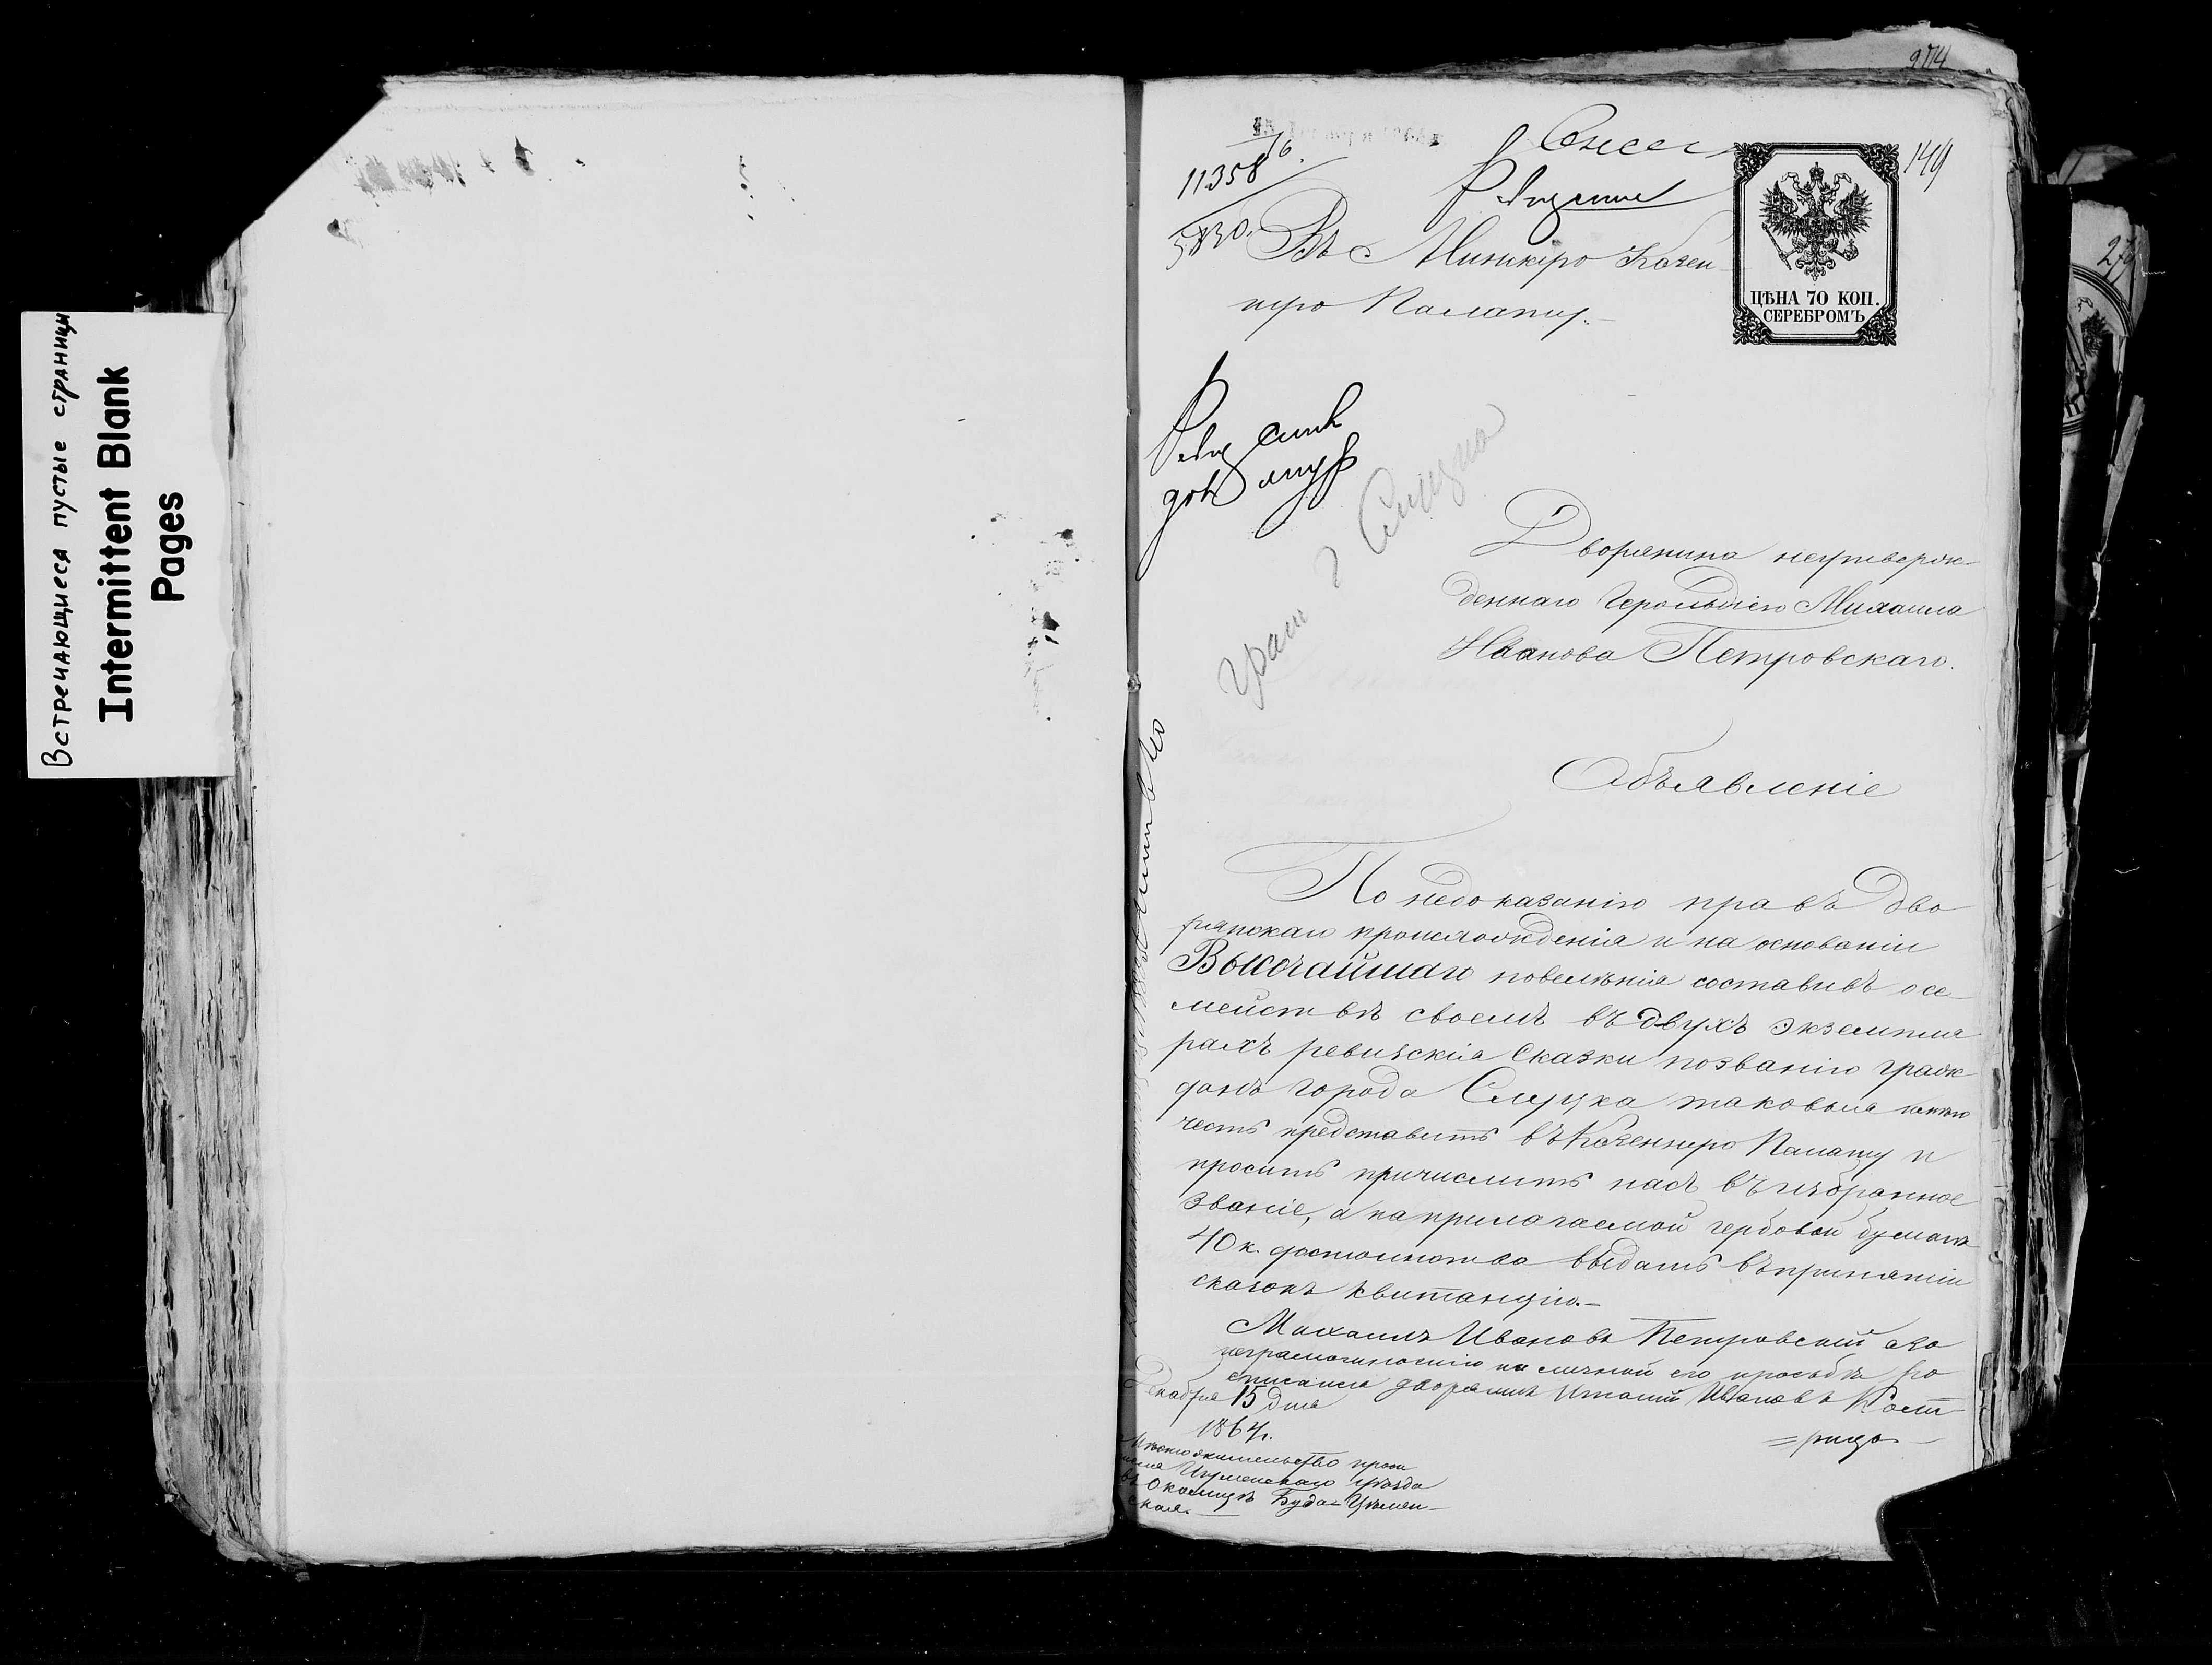 Встречающиеся пустые страницы
Intermittent Blank
Pages
274
149
11358
5830.
ЦѢНА 70 КОП.
СЕРЕБРОМЪ
Въ Минскую Казен
ную Палату.
граж г Слуцка
Дворянина неутверж
деннаго Герольдіею Михаила
Иванова Петровскаго.
Объявленіе
По недоказанію правъ дво
рянскаго происхожденія и на основаніи
Высочайшаго повелѣнія составивъ о се
мействѣ своемъ въ двухъ экземпля
рахъ ревизскія сказки по званію граж
данъ города Слуцка таковыя имѣю
честь представить въ Казенную Палату и
просить причислить насъ въ избранное
званіе, а на прилагаемой гербовой бумагѣ
40 к. достоинства выдать въ принятіи
сказокъ квитанцію.-
Михаилъ Ивановъ Петровскій а за
неграмотностію по личной его прозьбѣ ро
списался дворянинъ Игнатій Ивановъ Кост
=рица
Декабря 15 дня
1864 г.
Мѣстожительство
Игуменскаго уѣзда
въ околицѣ Буда-
ская.